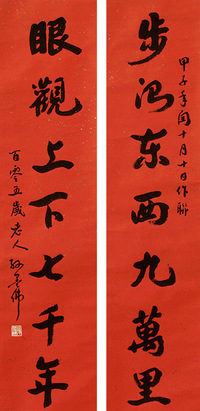 步东西九萬里
甲子年閏十月十日作聯
眼觀上下七千年
百零五歲老人孫墨佛